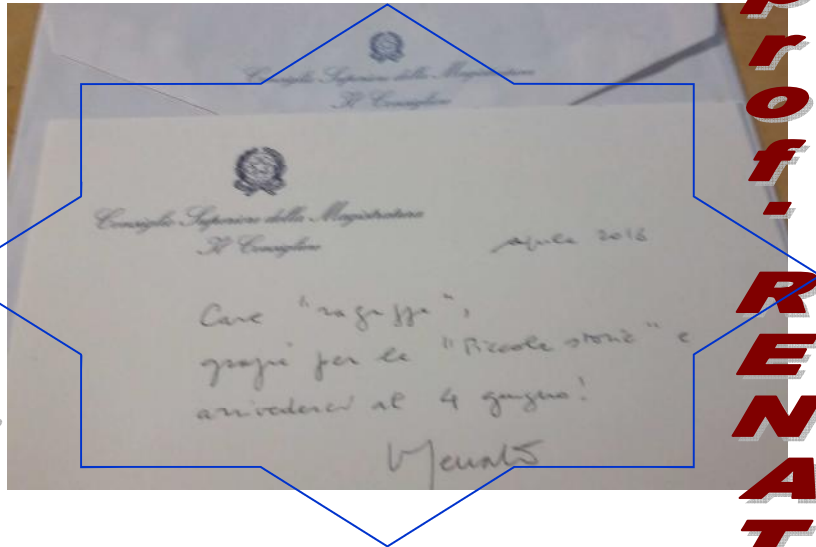 Consiglio Superiore della Magistratura
Il Consigliere
Consiglio Superiore della Magistratura
Il Consigliere
aprile 2016
Care "ragazze",
grazie per le "Piccole storie" e
arrivederci al 4 giugno!
prof. RENAT